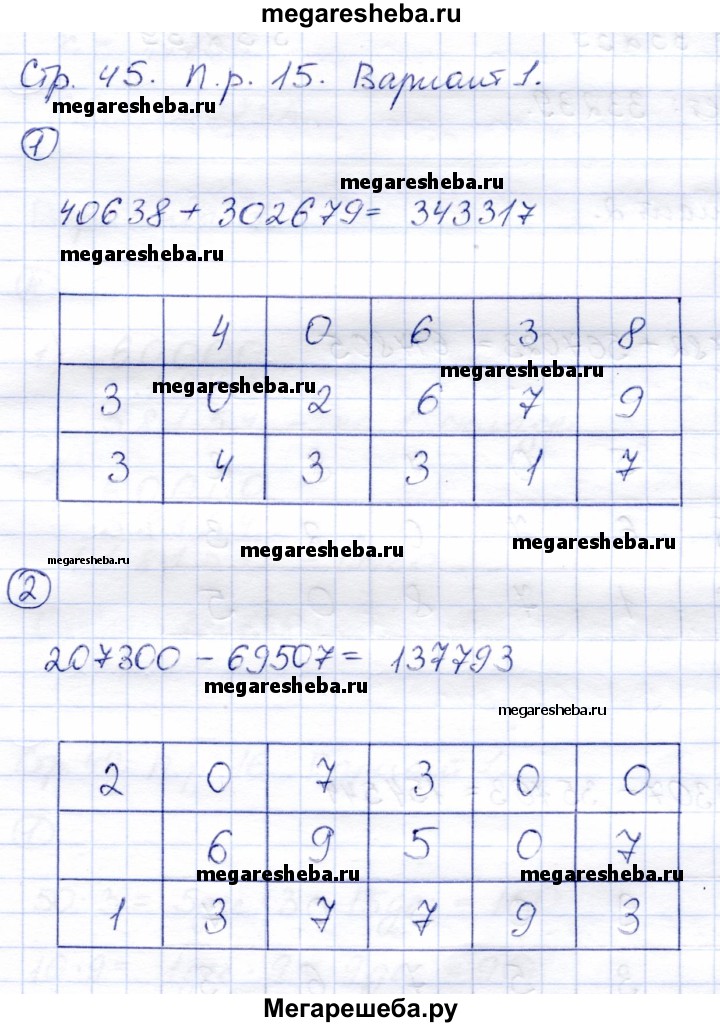 megaresheba.ru
Стр. 45. П.р. 15. Вариант 1.
megaresheba.ru
1
megaresheba.ru
40638 + 302679 = 343317
megaresheba.ru
4 0 6 3 8
megaresheba.ru
megaresheba.ru
3 0 2 6 7 9
3 4 3 3 1 7
megaresheba.ru
megaresheba.ru
megaresheba.ru
2
207300 - 69507 = 137793
megaresheba.ru
megaresheba.ru
2 0 7 3 0 0
6 9 5 0 7
megaresheba.ru
megaresheba.ru
1 3 7 7 9 3
Мегарешеба.ру